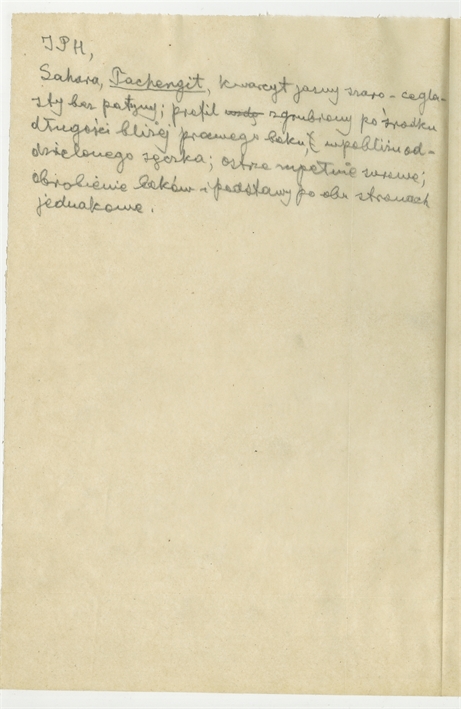 IPH,
Sahara, Tachengit, kwarcyt jasny szaro-cegla-
sty bez patyny; profil zgrubiony po środku
długości bliżej prawego boku, w pobliżu od-
dzielonego sęczka; ostrze zupełnie surowe;
obrobienie boków i podstawy po obu stronach
jednakowe.